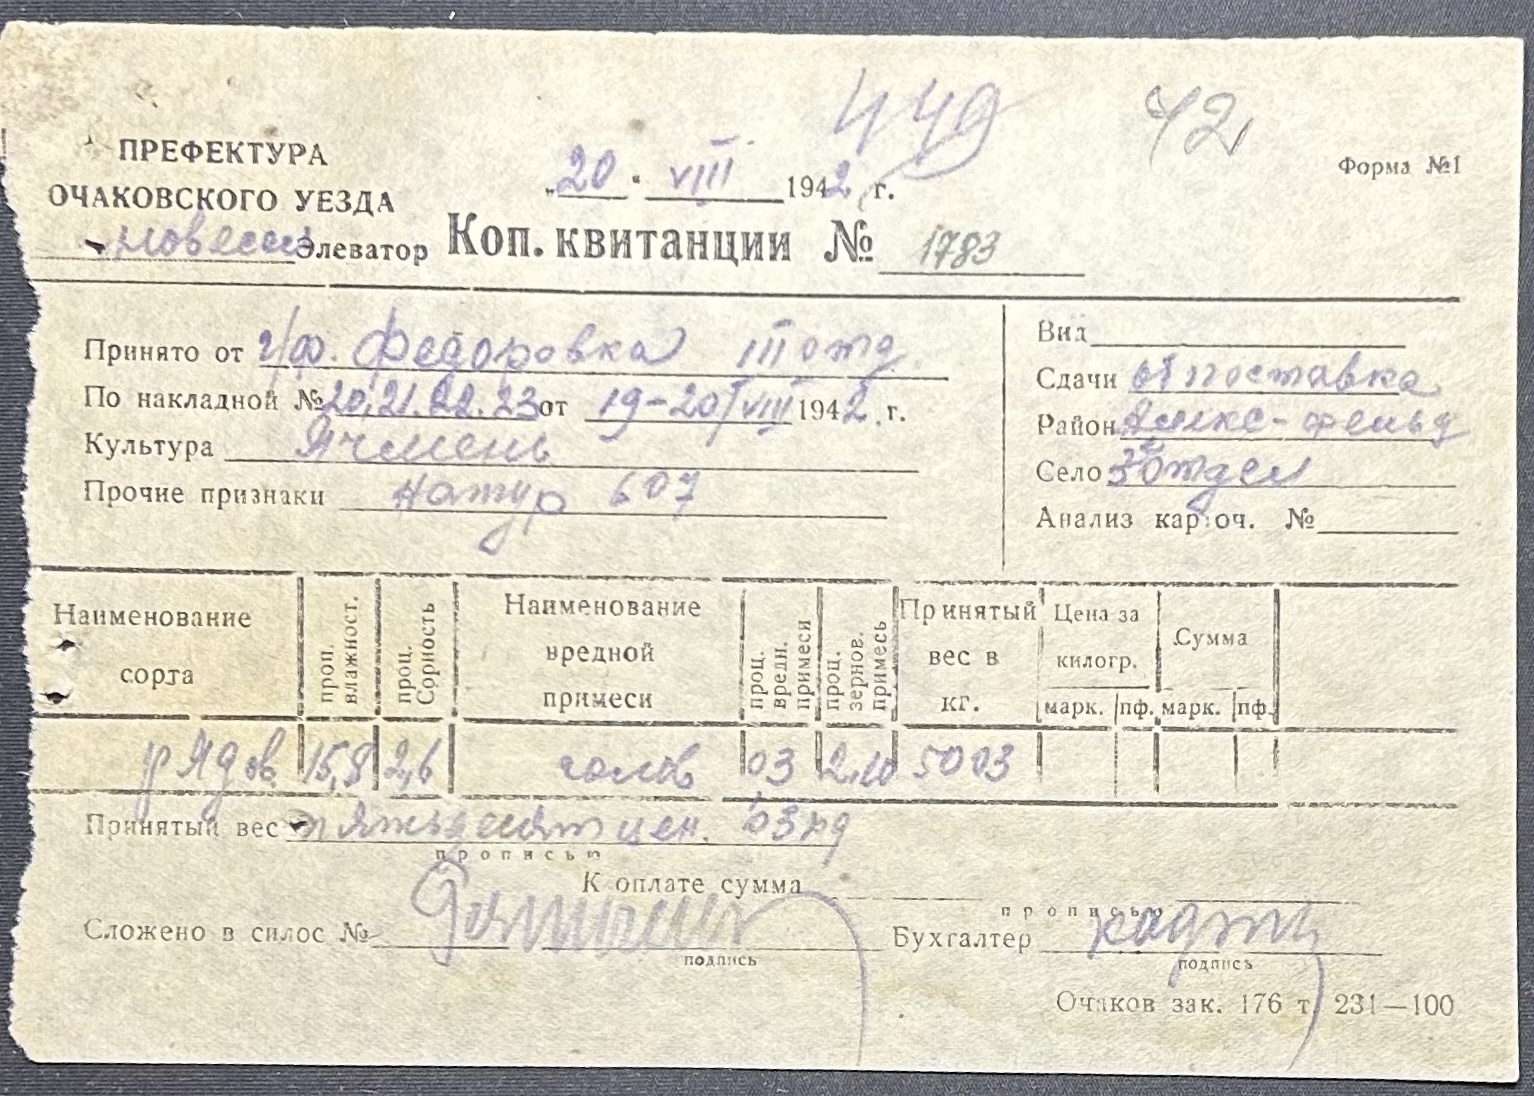 449 42
ПРЕФЕКТУРА
ОЧАКОВСКОГО УЕЗДА
„20“ VIII 1942 г.
Форма №1
Элеватор Коп. квитанции № 1783
Принято от г/ф. Федоровка III отд
По накладной № 20,21.22.23 от 19-20/VIII 1942 г.
Культура Ячмень
Прочие признаки натур 607
Вид
Сдачи поставка
Район
Село 3 отдел
Анализ карточ. №
Наименование сорта
проц. влажност.
проц. Сорность
Наименование вредной примеси
проц. вредн. примеси
проц. зернов. примесь
Принятый вес в кг.
Цена за килогр.
Сумма
марк. пф. марк. пф.
рядов 15,8 2,6 голов 03 2.10 5003
Принятый вес пятьдесят цен. 03 кг
прописью
К оплате сумма
прописью
Сложено в силос №
подпись
Бухгалтер
подпись
Очаков зак. 176 т. 231—100